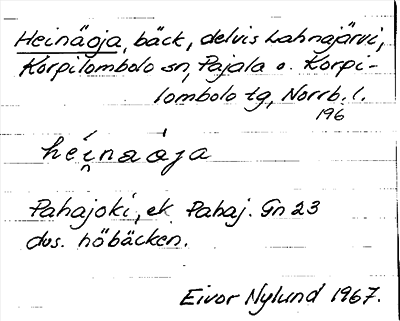 Heinäoja, bäck, delvis Lahnajärvi,
Korpilombolo sn, Pajala o. Korpi-
lombolo tg, Norrb. l.
196
héi̯naȧja
Pahajoki, ek. Pahaj. Gn 23
dvs. höbäcken.
Eivor Nylund 1967.